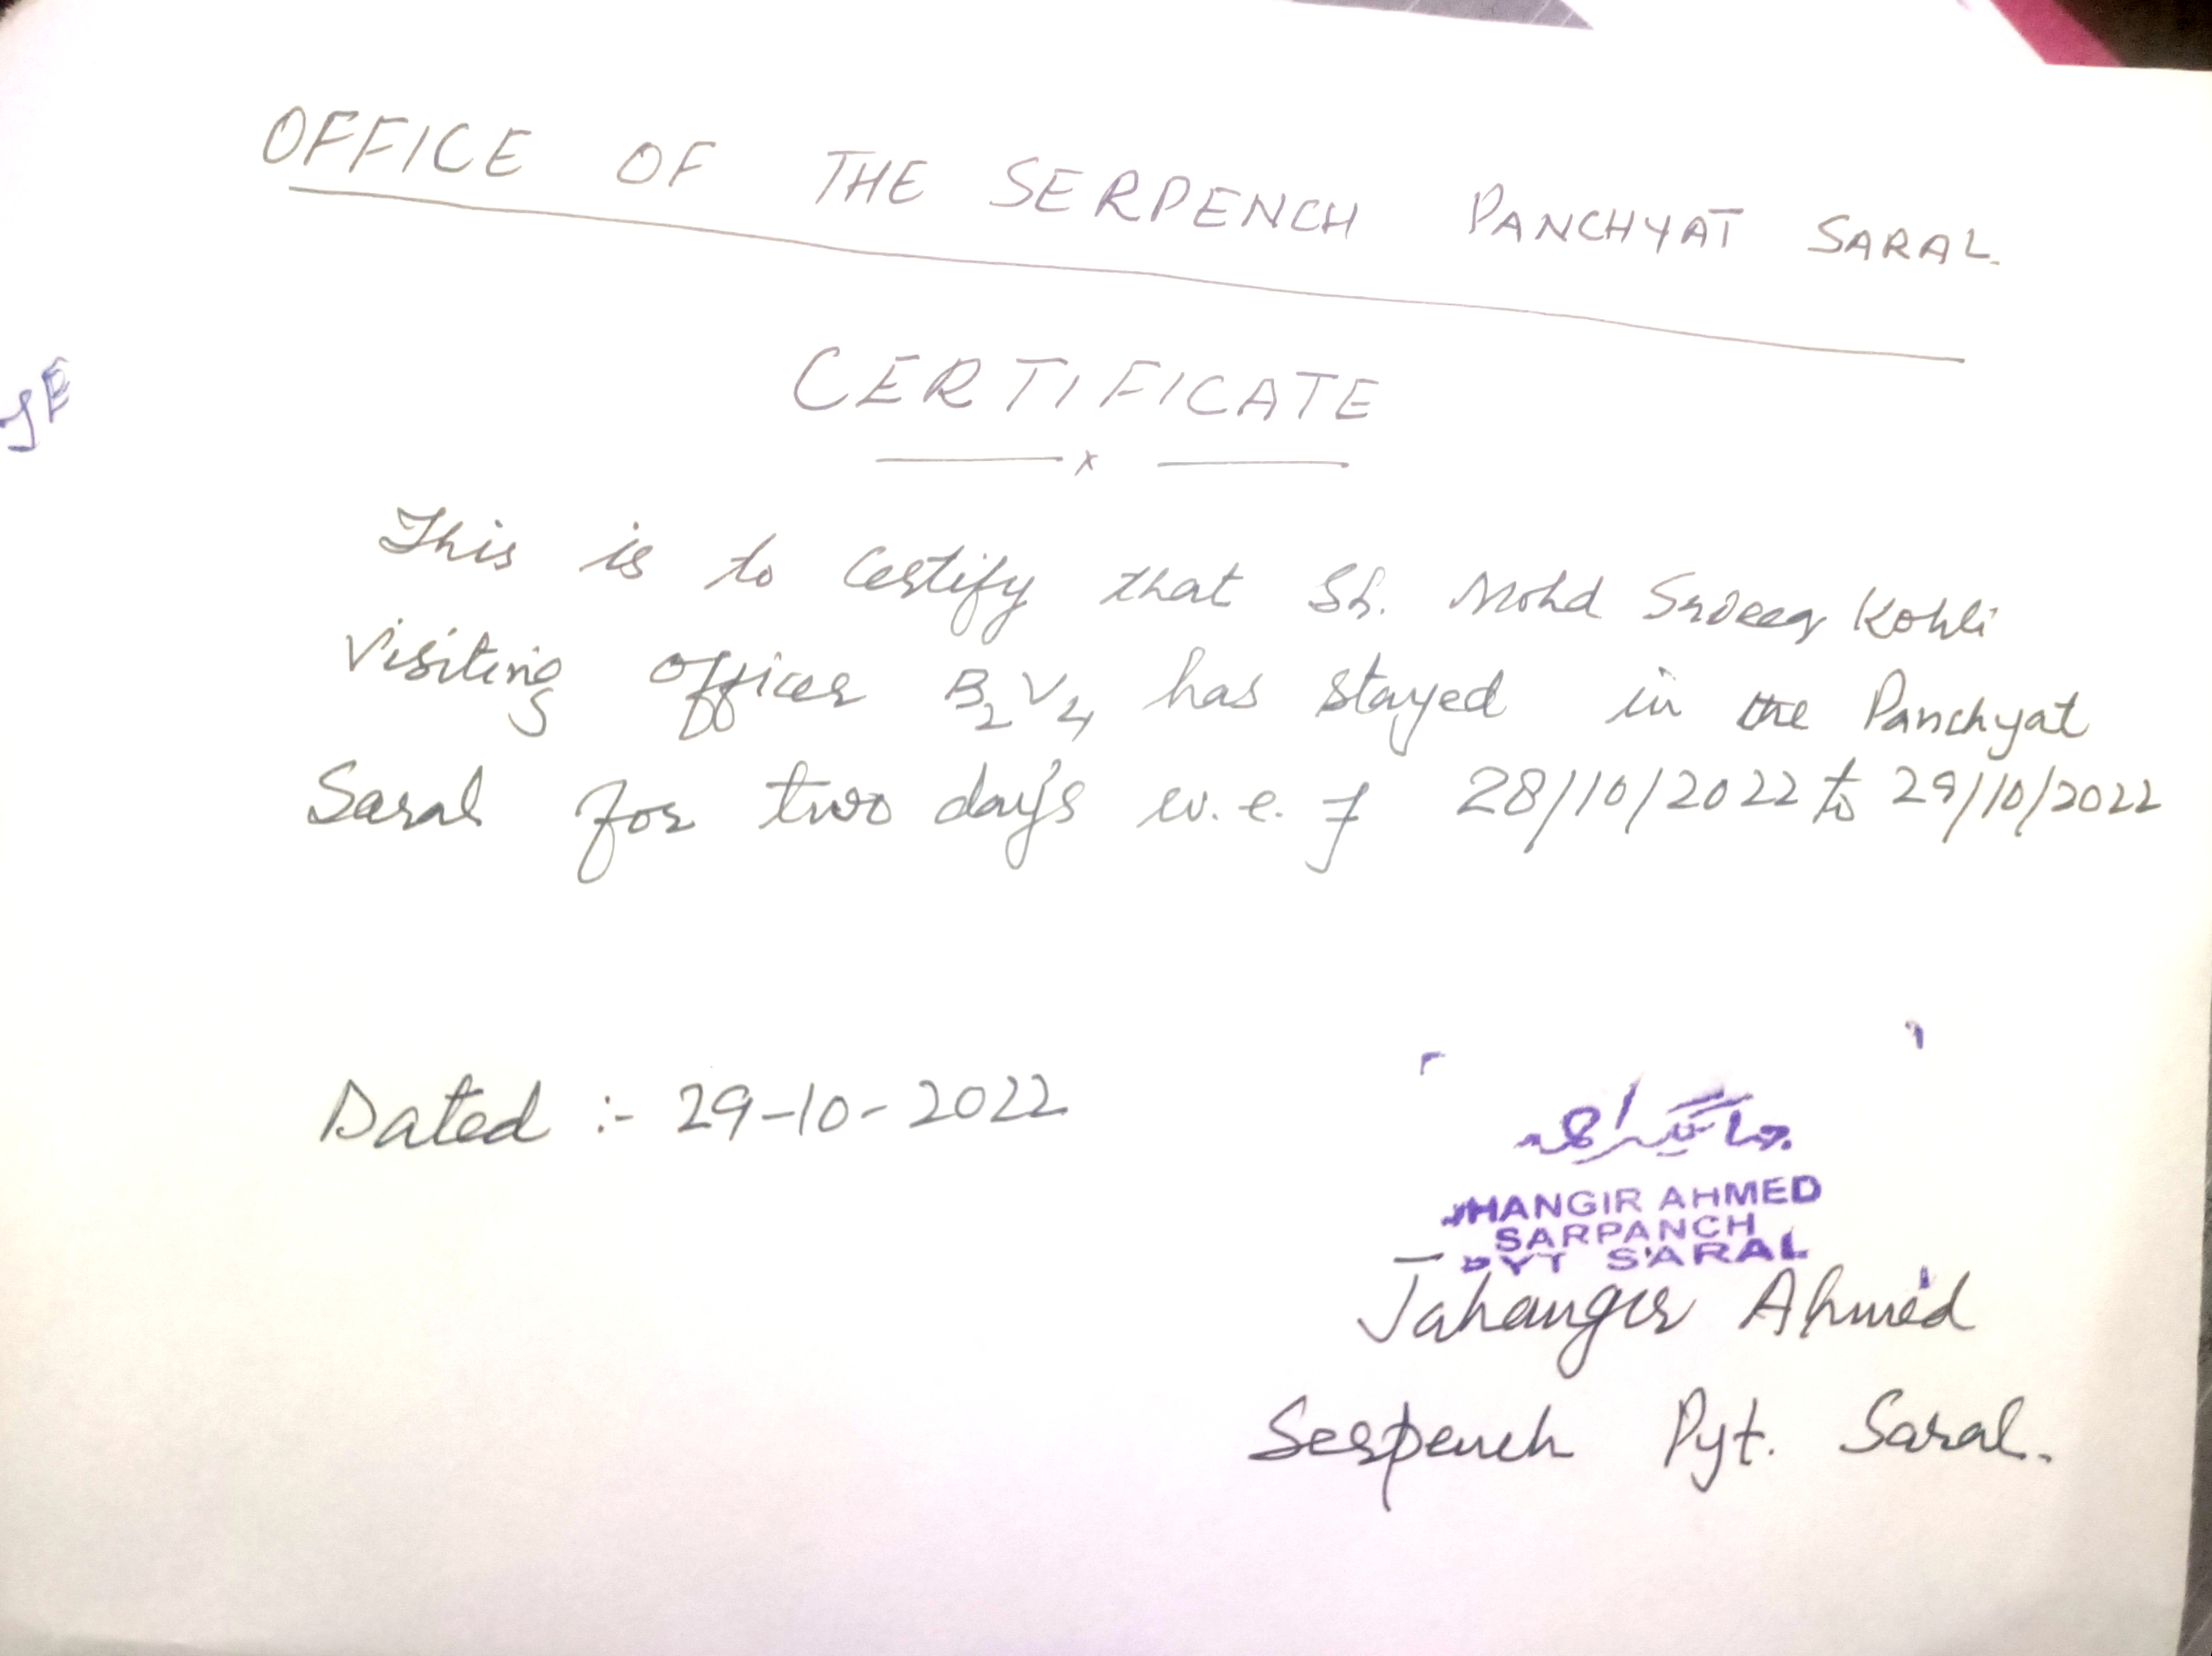 OFFICE OF THE SERPENCH PANCHYAT SARAL.
CERTIFICATE
This is to certify that Sh. Mohd Kohli
Visiting officer B2V4 has stayed in the Panchyat
Saral for two day's w.e.f 28/10/2022 to 29/10/2022
Dated :- 29-10-2022
جہانگیر احمد
HANGIR AHMED
SARPANCH
PYT SARAL
Jahangir Ahmed
Serpench Pyt. Saral.